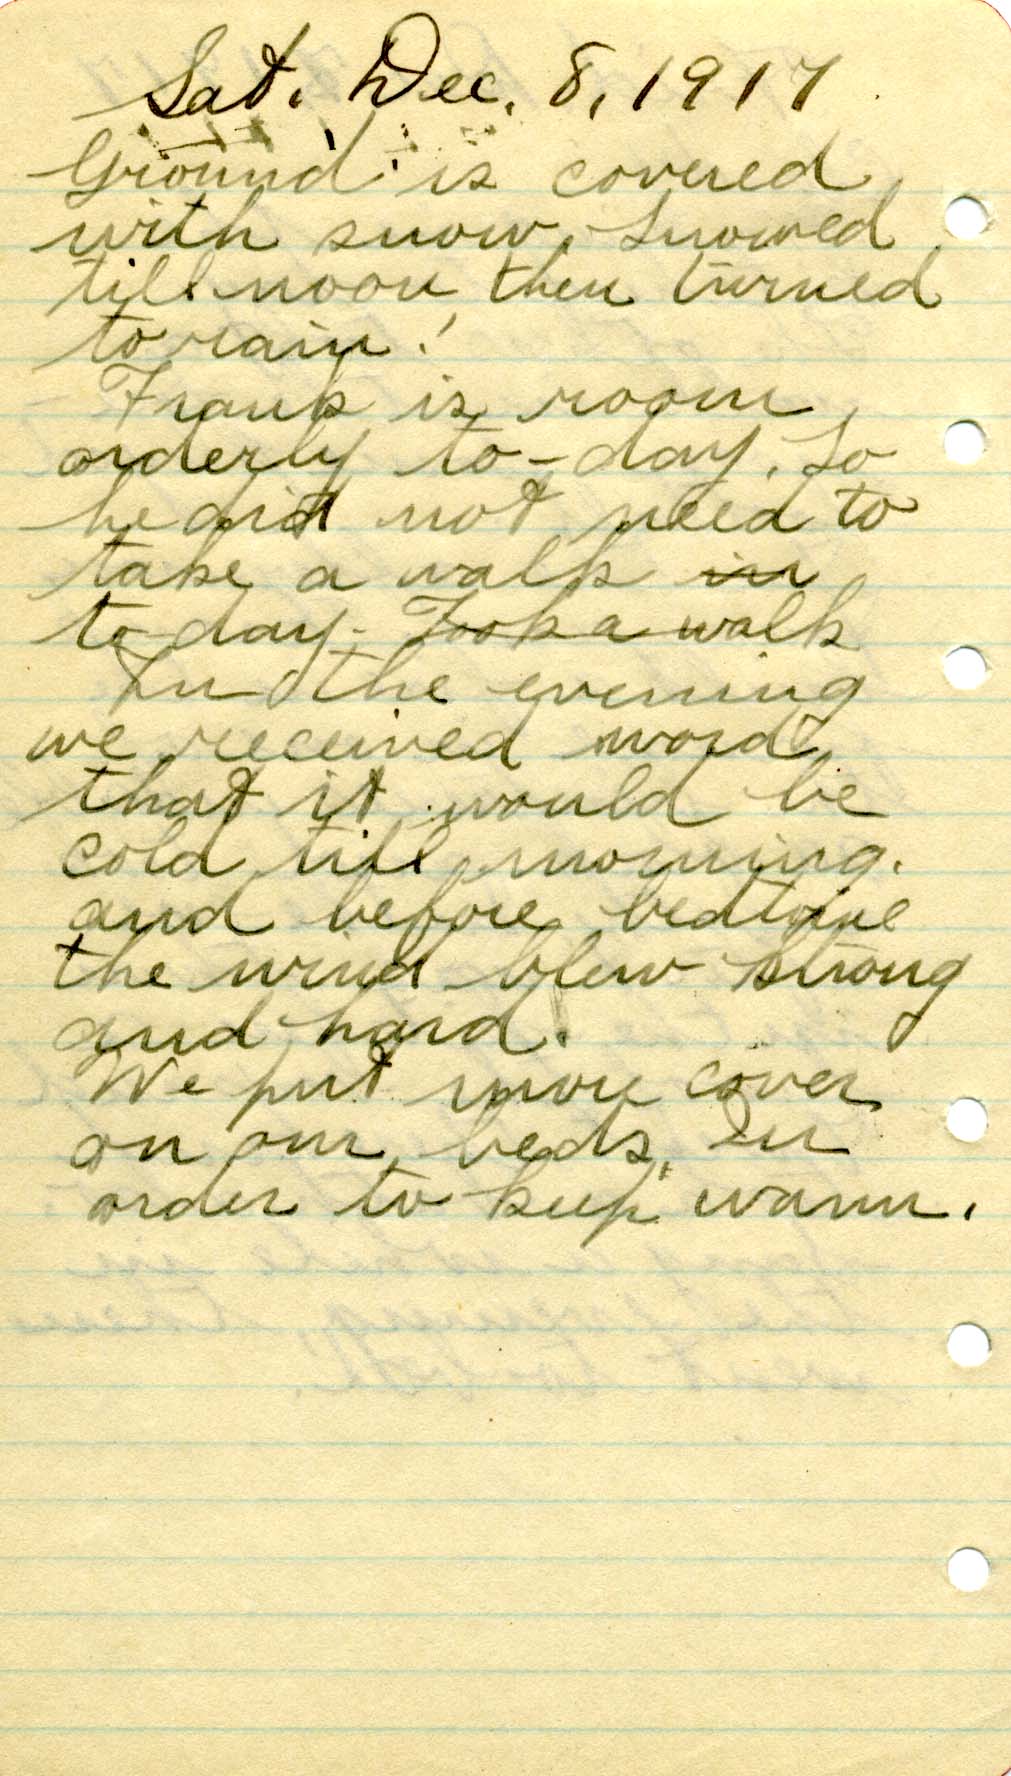 Sat. Dec. 8, 1917
Ground is covered
with snow. Snowed
till noon, then turned
to rain!
Frank is room
orderly to-day. So
he did not need to
take a walk in
to-day. Took a walk
In the evening
we received word
that it would be
cold till morning.
and before bedtime
the wind blew strong
and hard.
We put more cover
on our beds. In
order to keep warm.